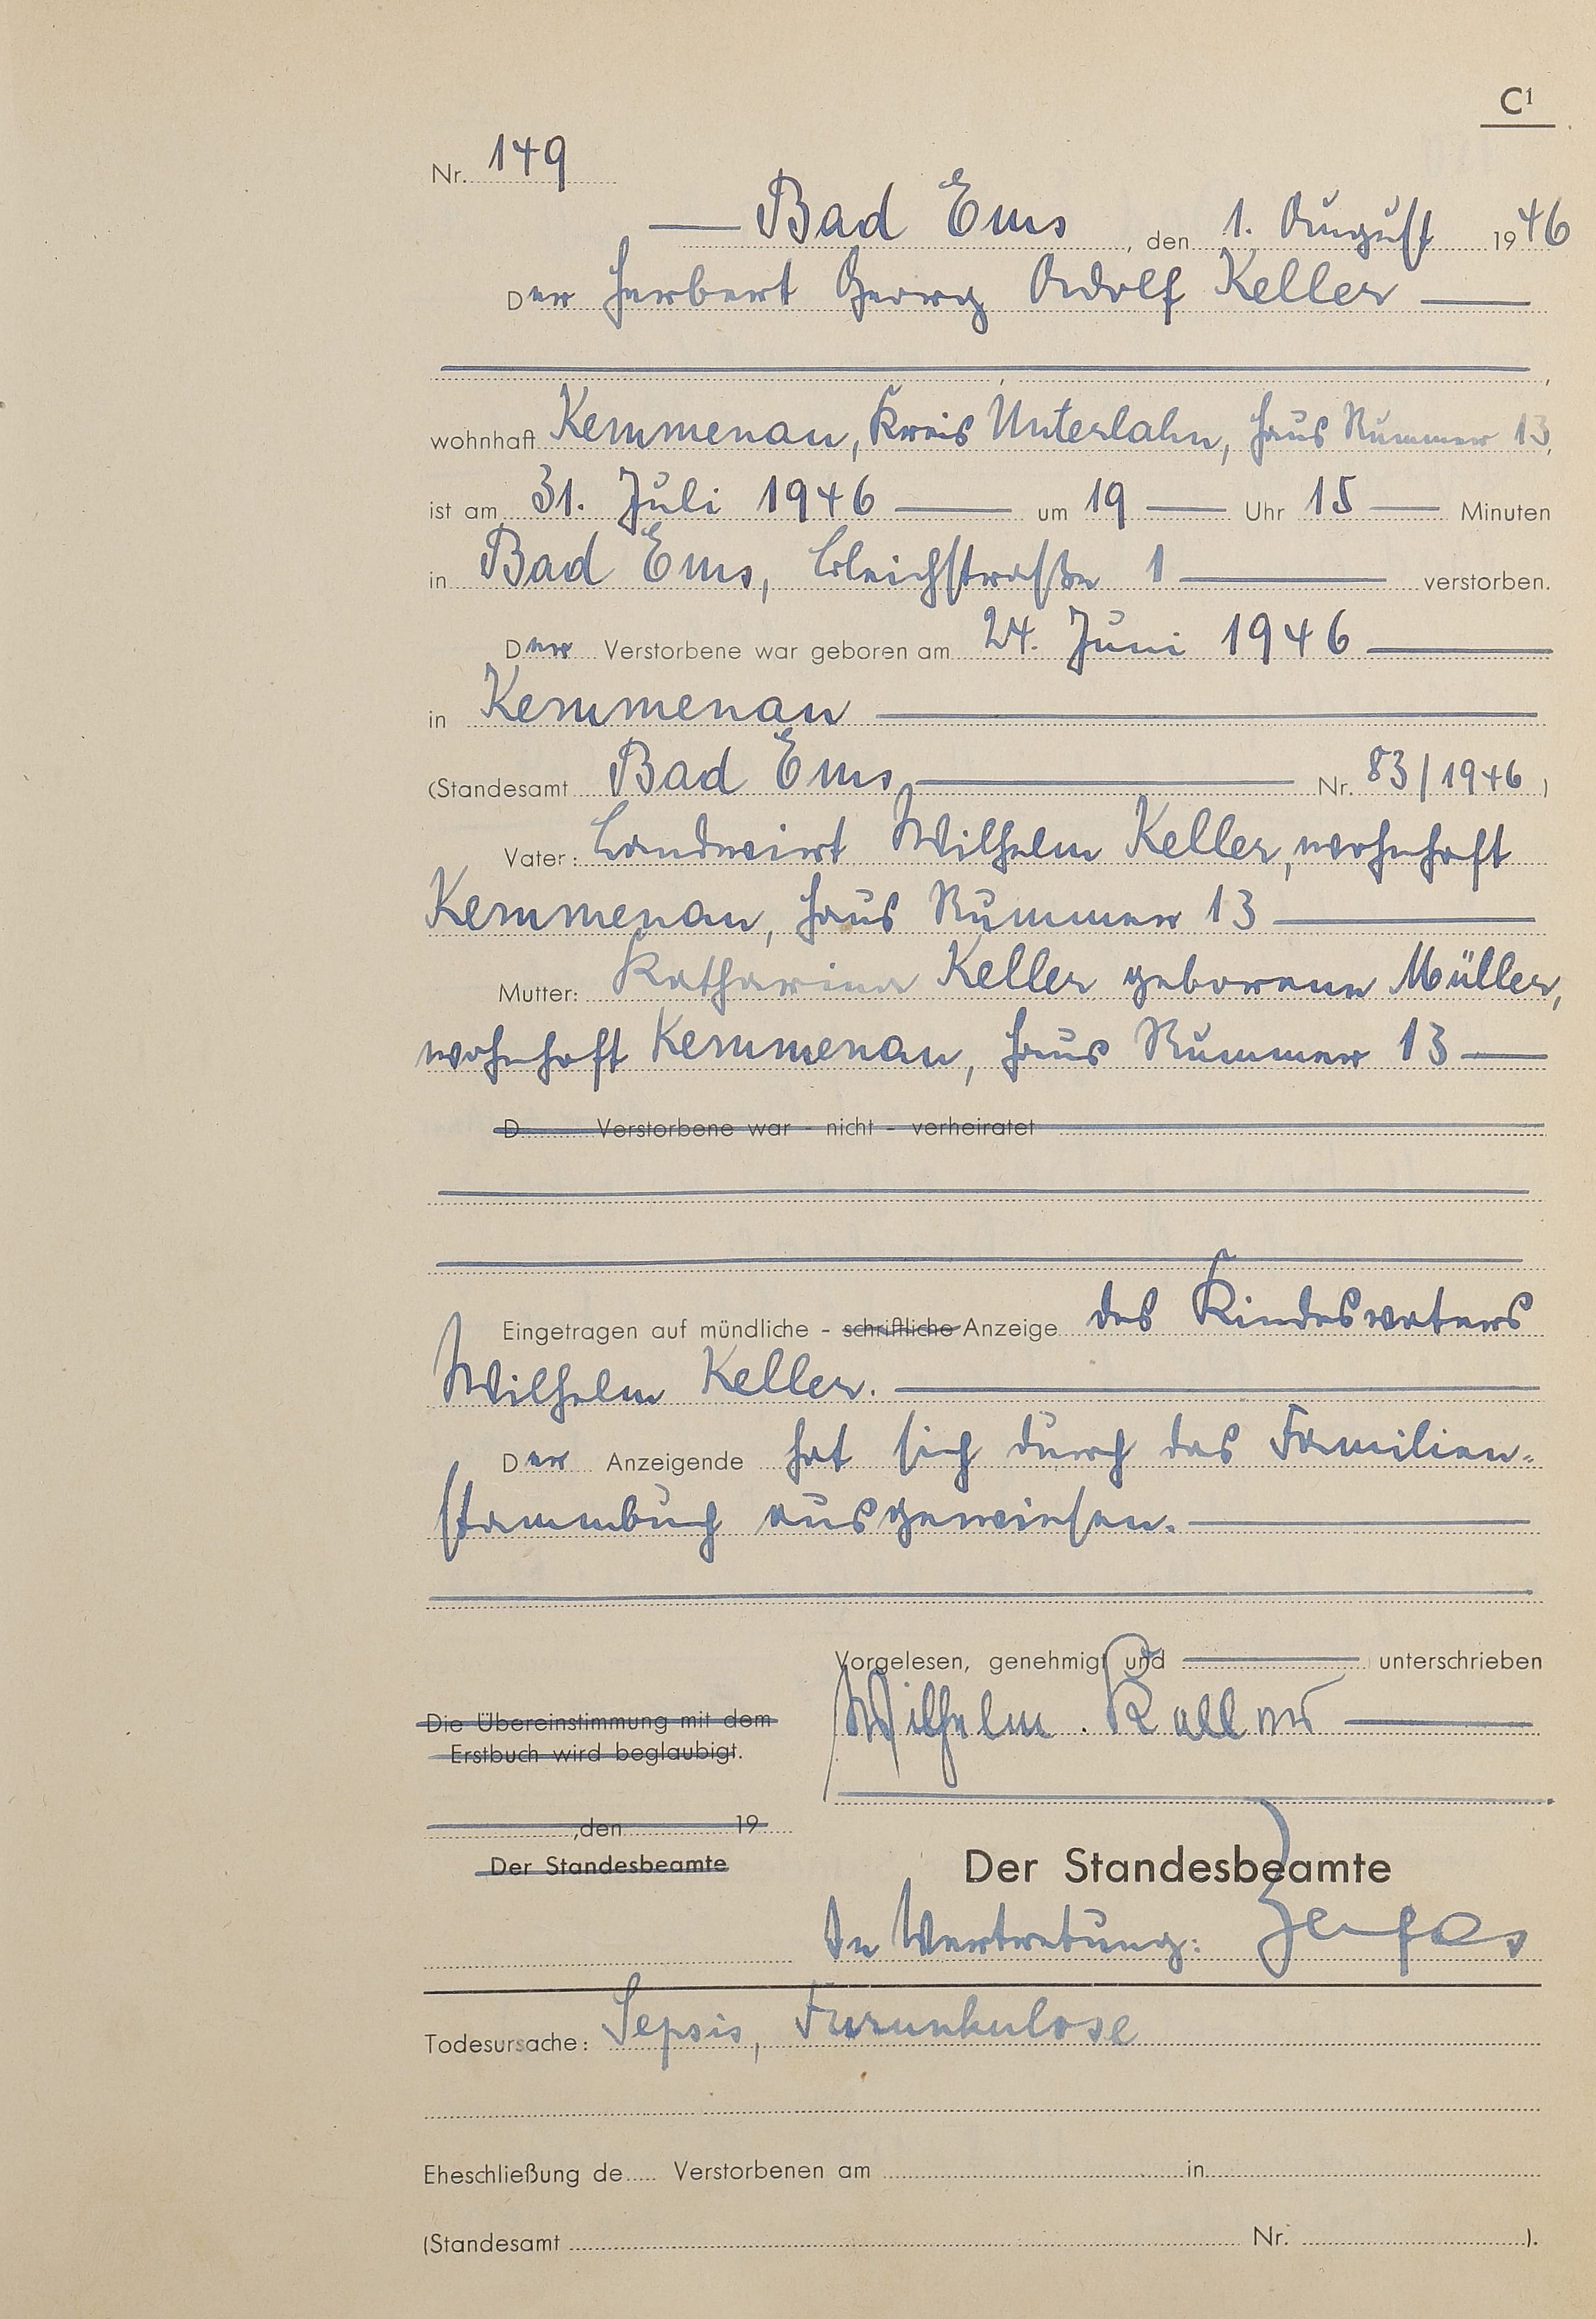 C1
Nr. 149
Bad Ems, den 1. August 1946
Der Herbert Georg Adolf Keller
wohnhaft Kemmenau, Kreis Unterlahn, Haus Nummer 13,
ist am 31. Juli 1946 um 19 Uhr 15 Minuten
in Bad Ems, Bleichstraße 1 verstorben.
Der Verstorbene war geboren am 24. Juni 1946
in Kemmenau
(Standesamt Bad Ems Nr. 83/1946)
Vater: Landwirt Wilhelm Keller, wohnhaft
Kemmenau, Haus Nummer 13
Mutter: Katharina Keller geborene Müller,
wohnhaft Kemmenau, Haus Nummer 13
D Verstorbene war - nicht - verheiratet
Eingetragen auf mündliche - schriftliche Anzeige des Kindesvaters
Wilhelm Keller.
Der Anzeigende hat sich durch das Familien-
stammbuch ausgewiesen.
Vorgelesen, genehmigt und unterschrieben
Wilhelm. Keller
Die Übereinstimmung mit dem
Erstbuch wird beglaubigt.
, den 19
Der Standesbeamte
Der Standesbeamte
In Vertretung:
Todesursache: Sepsis, Furunkulose
Eheschließung de Verstorbenen am in
(Standesamt Nr. ).